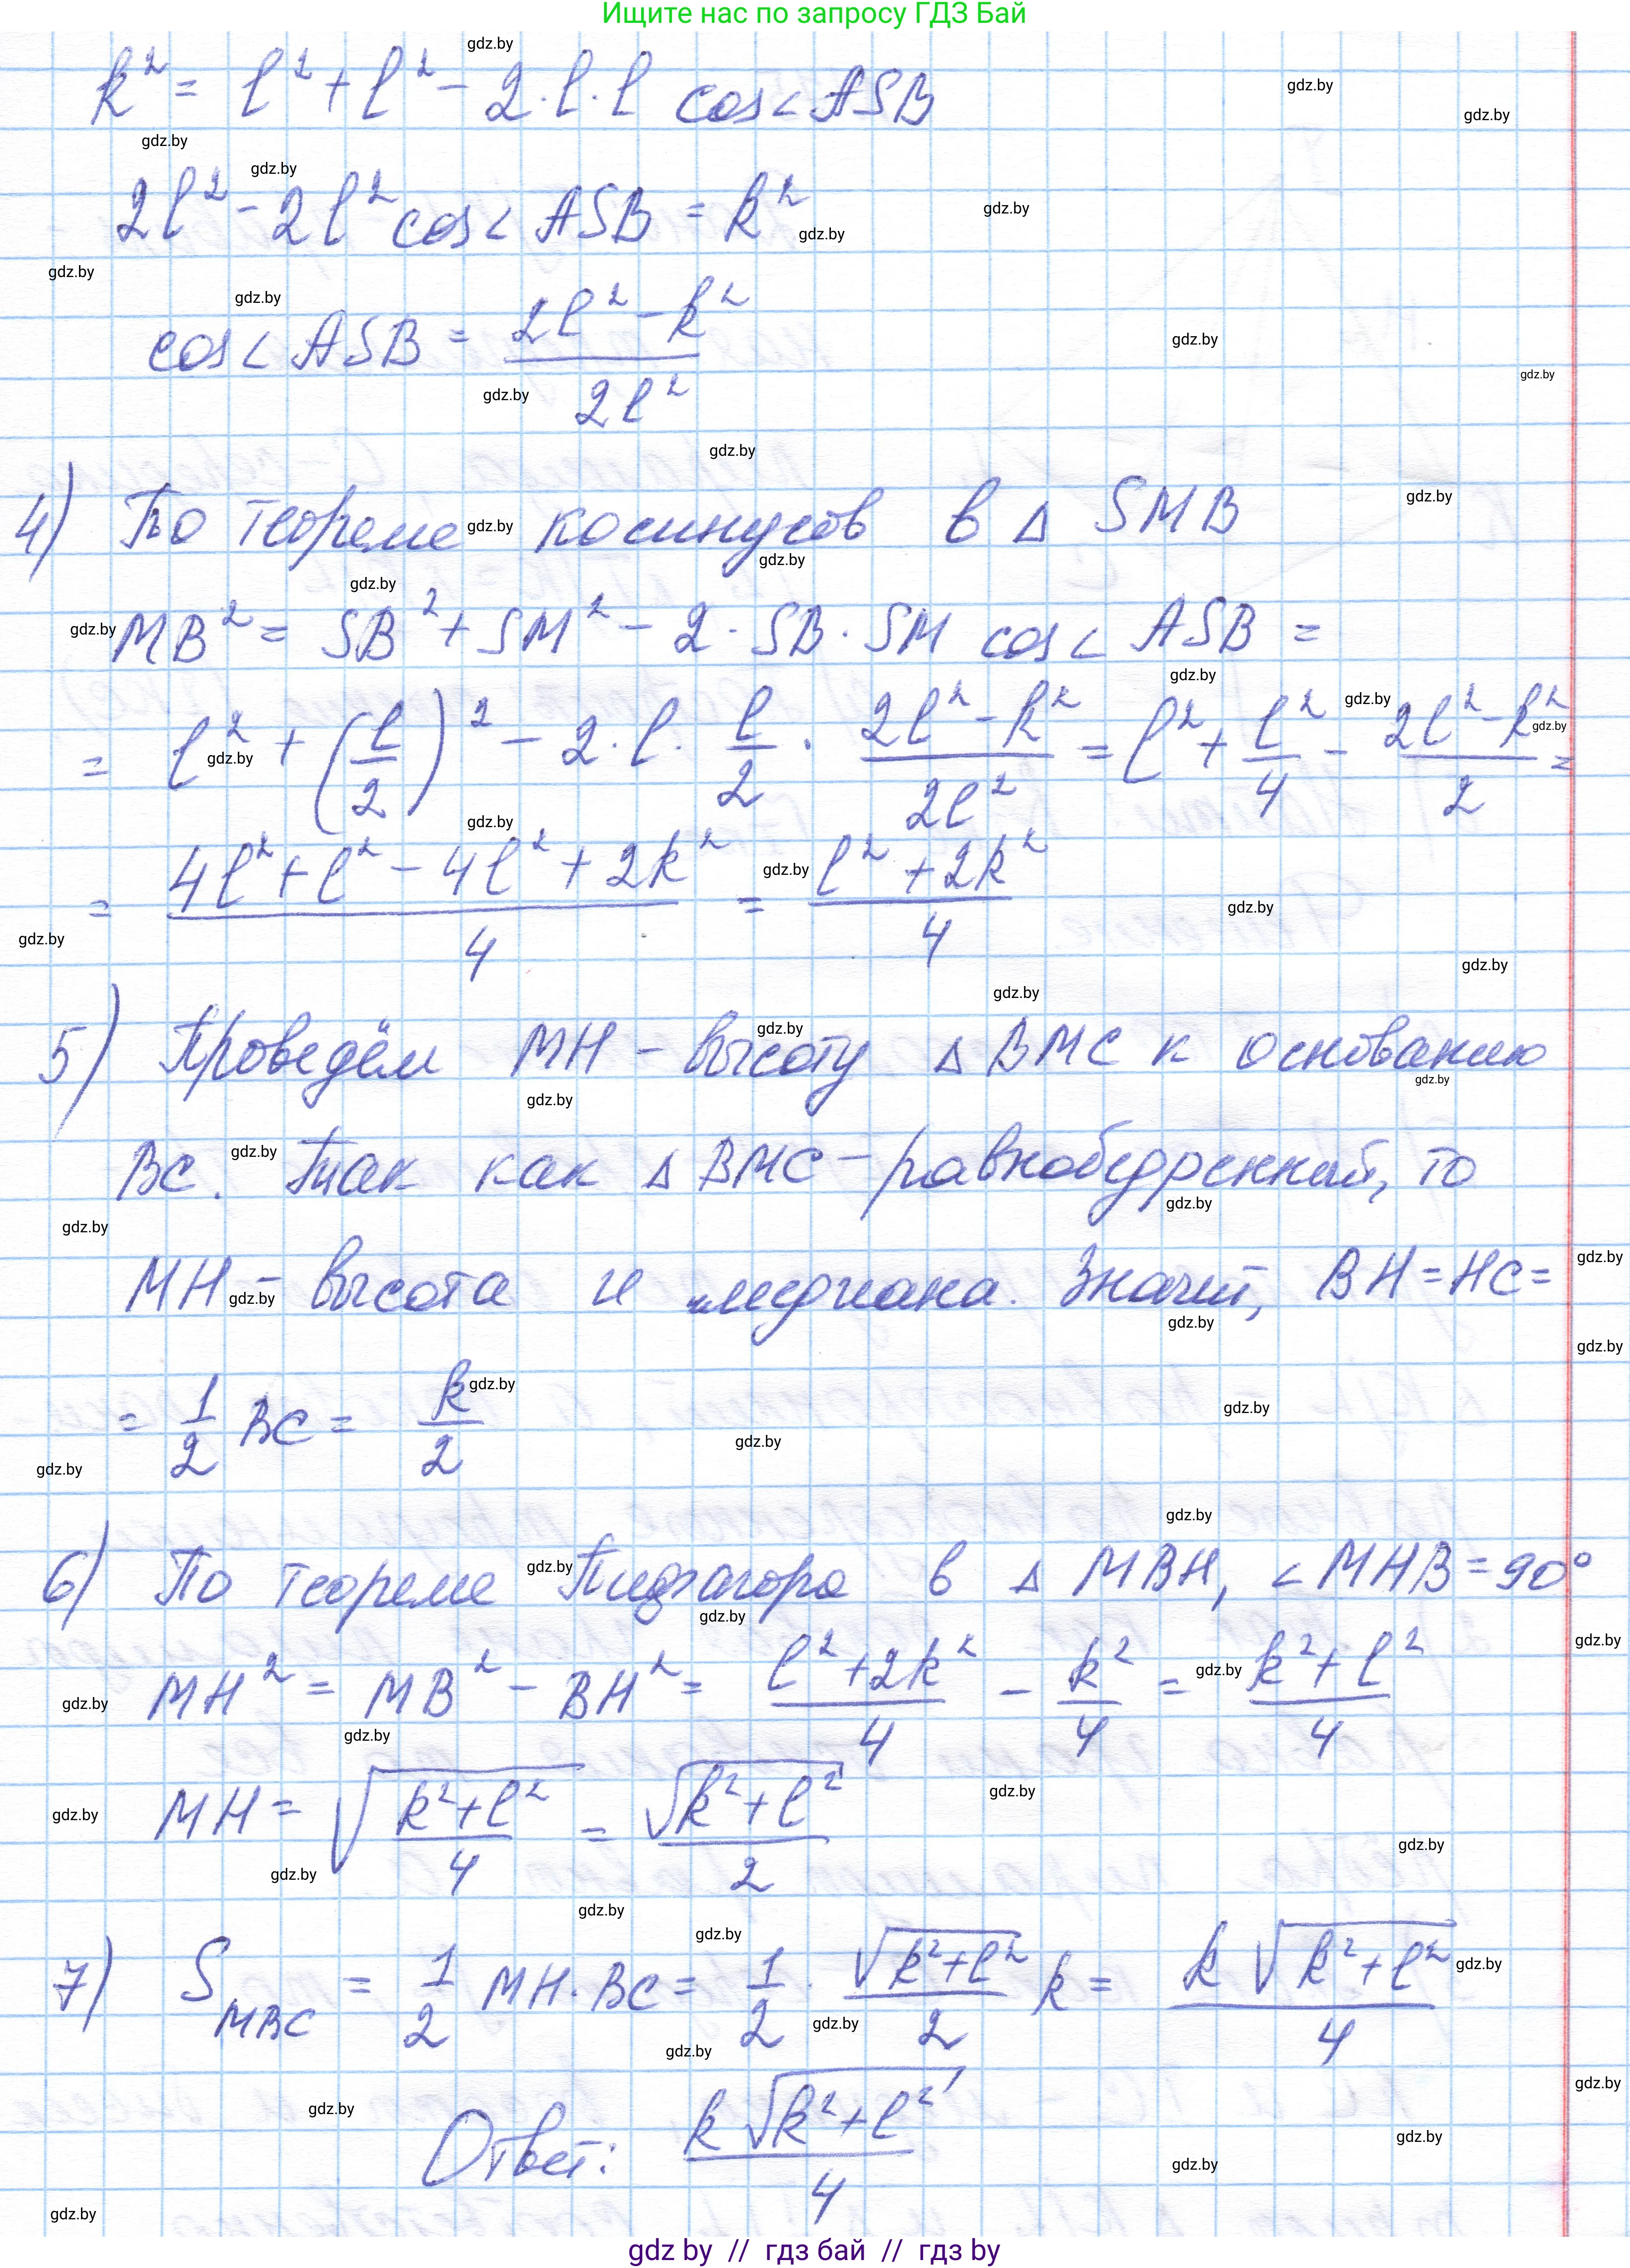 Ищите нас по запросу ГДЗ Бай
k² = l² + l² - 2·l·l cos∠ASB
2l² - 2l² cos∠ASB = k²
cos∠ASB = (2l² - k²)/(2l²)
4) По теореме косинусов в Δ SMB
MB² = SB² + SM² - 2·SB·SM cos∠ASB =
= l² + (l/2)² - 2·l·l/2·(2l² - k²)/(2l²) = l² + l²/4 - (2l² - k²)/2 =
= (4l² + l² - 4l² + 2k²)/4 = (l² + 2k²)/4
5) Проведём MH - высоту Δ BMC к основанию
BC. Так как Δ BMC - равнобедренный, то
MH - высота и медиана. Значит, BH = HC =
= 1/2 BC = k/2
6) По теореме Пифагора в Δ MBH, ∠MHB = 90°
MH² = MB² - BH² = (l² + 2k²)/4 - k²/4 = (k² + l²)/4
MH = √((k² + l²)/4) = √(k² + l²)/2
7) S_MBC = 1/2 MH·BC = 1/2·√(k² + l²)/2 k = k√(k² + l²)/4
Ответ: k√(k² + l²)/4
gdz by // гдз бай // гдз by